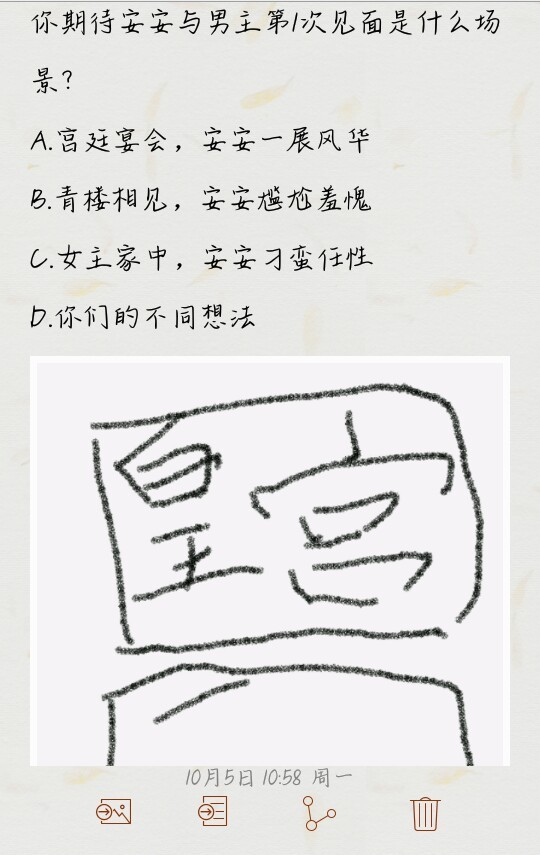 你期待安安与男主第1次见面是什么场
景？
A.宫廷宴会，安安一展风华
B.青楼相见，安安尴尬羞愧
C.女主家中，安安刁蛮任性
D.你们的不同想法
皇宫
10月5日 10:58 周一